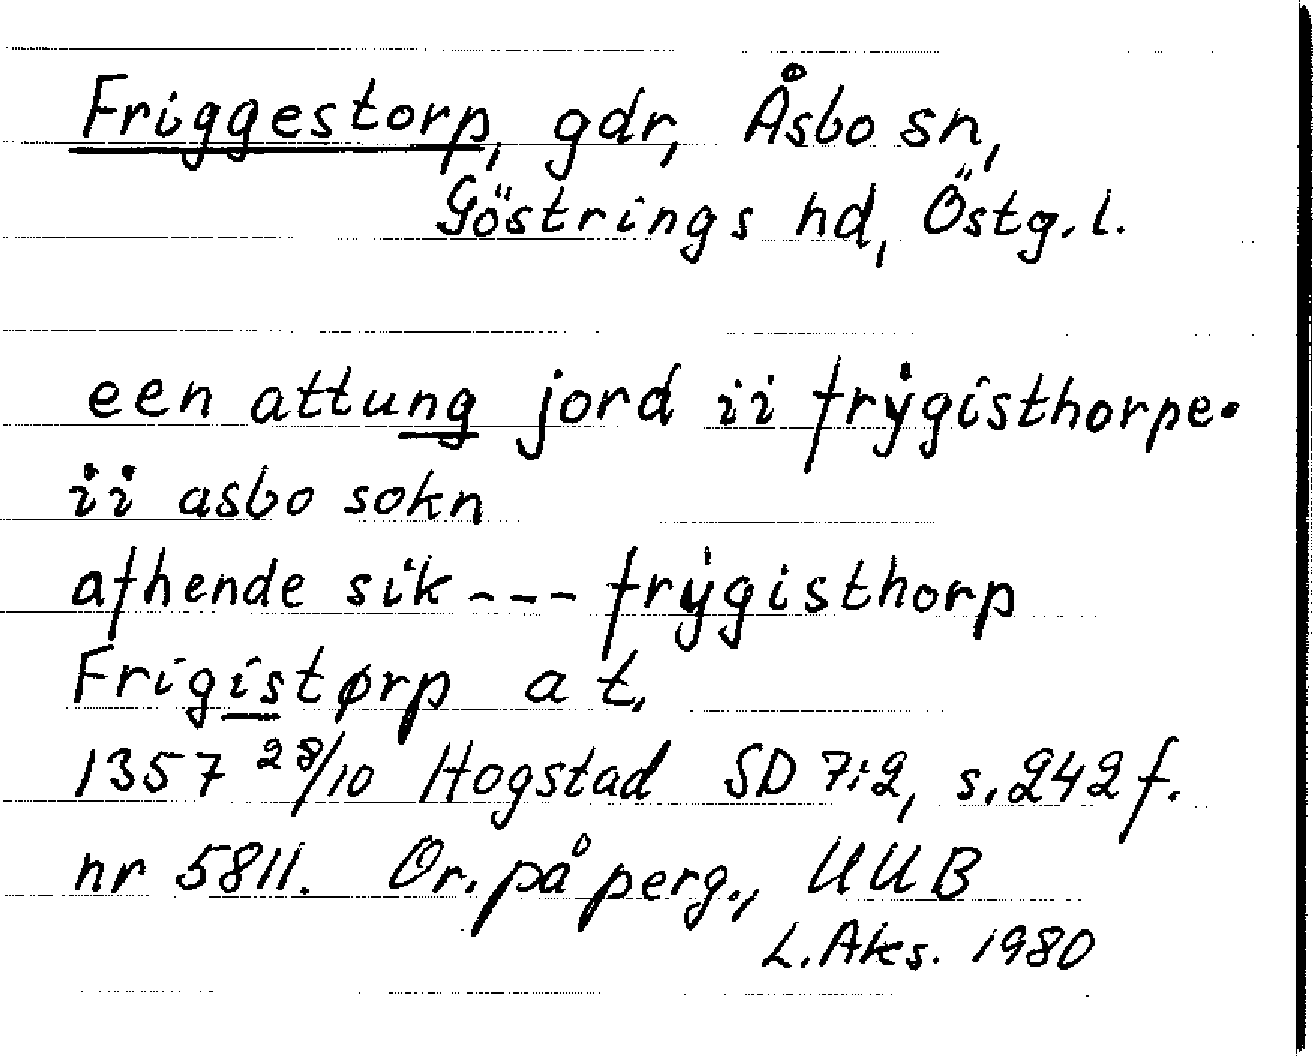 Friggestorp, gdr, Åsbo sn,
Göstrings hd, Östg. l.
een attung jord ii frÿgisthorpe.
ii asbo sokn
afhende sik --- frÿgisthorp
Frigistørp a t.
1357 28/10 Hogstad SD 7:2, s. 242 f.
nr 5811. Or. på perg., UUB
L. Aks. 1980